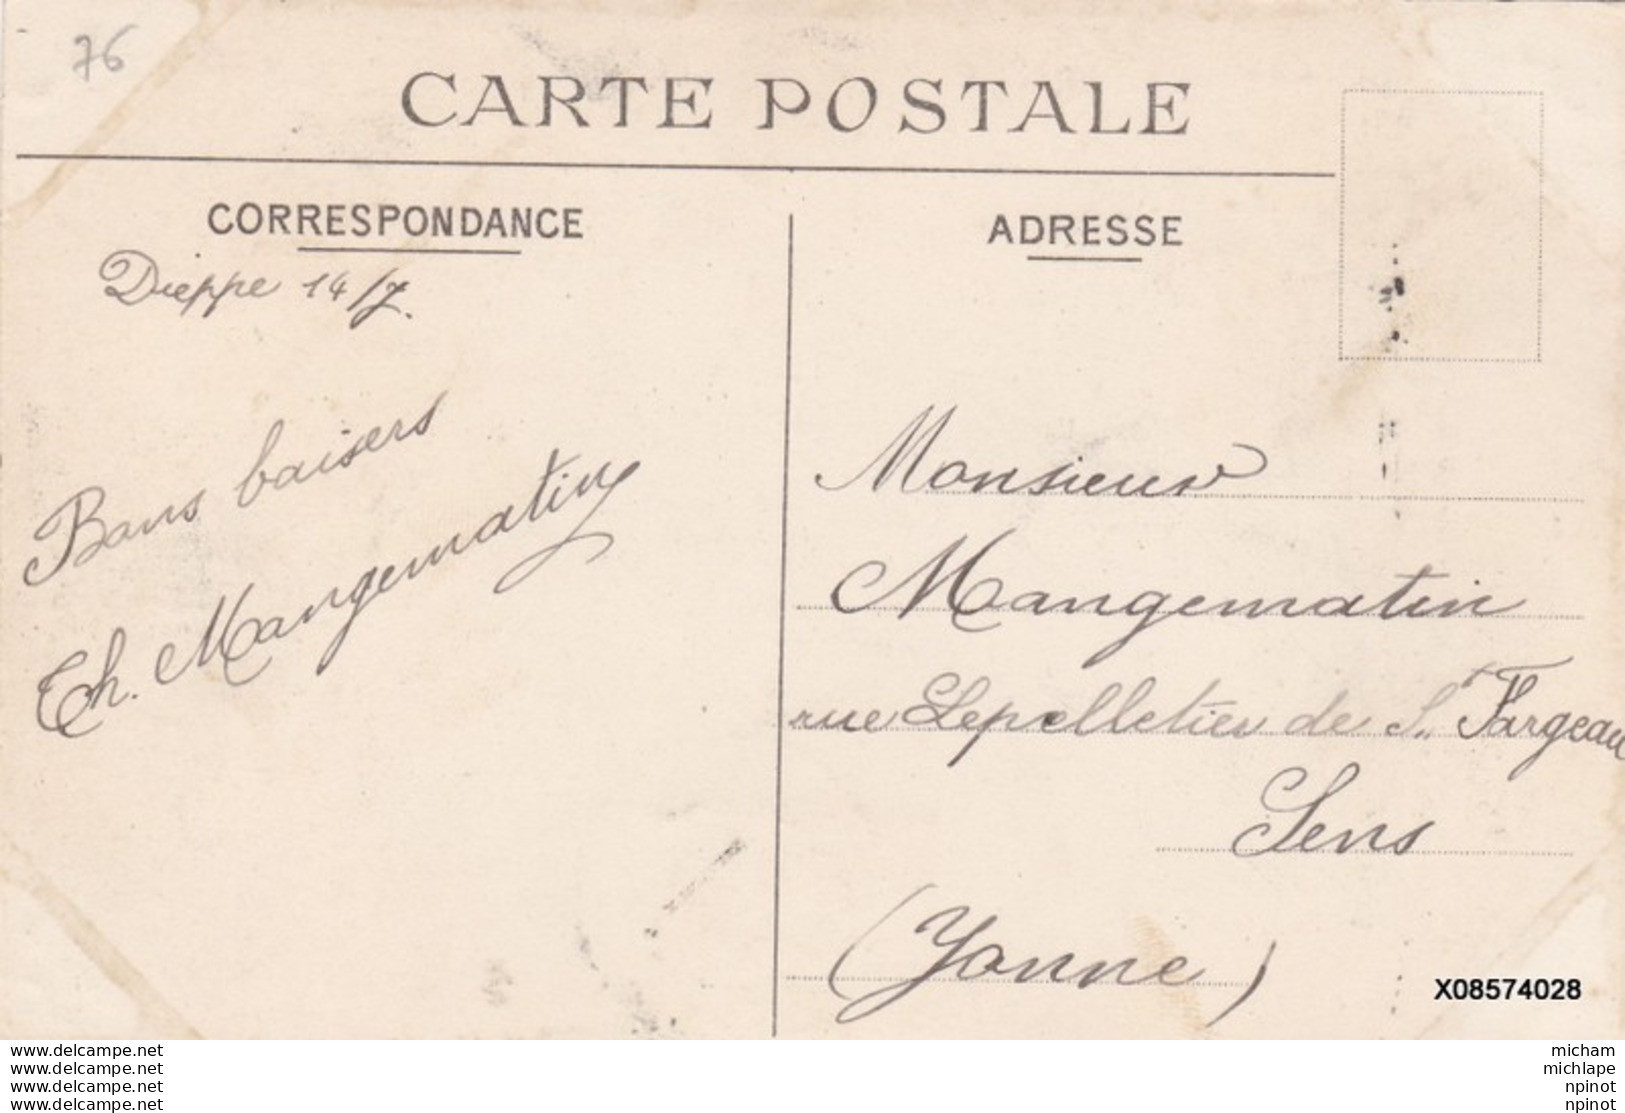 76
CARTE POSTALE
CORRESPONDANCE
Dieppe 14/7.
Bons baisers
Ch. Mangematin
ADRESSE
Monsieur
Mangematin
rue Lepelletier de St Fargeau
Sens
(Yonne)
X08574028
www.delcampe.net
www.delcampe.net
www.delcampe.net
www.delcampe.net
micham
michlape
npinot
npinot